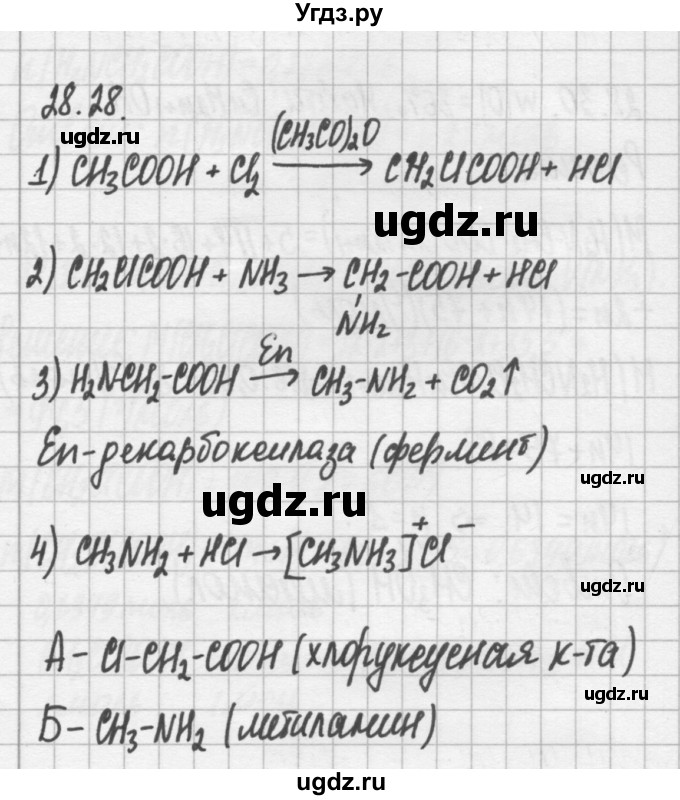 Угдз.ру
28.28.
ugdz.ru
1) CH3COOH + Cl2 (CH3CO)2O → CH2ClCOOH + HCl
ugdz.ru
2) CH2ClCOOH + NH3 → CH2-COOH + HCl
NH2
ugdz.ru
3) H2NCH2-COOH En → CH3-NH2 + CO2↑
En - декарбоксилаза (фермент)
ugdz.ru
4) CH3NH2 + HCl → [CH3NH3]+Cl−
А - Cl-CH2-COOH (хлоруксусная к-та)
ugdz.ru
Б - CH3-NH2 (метиламин)
ugdz.ru